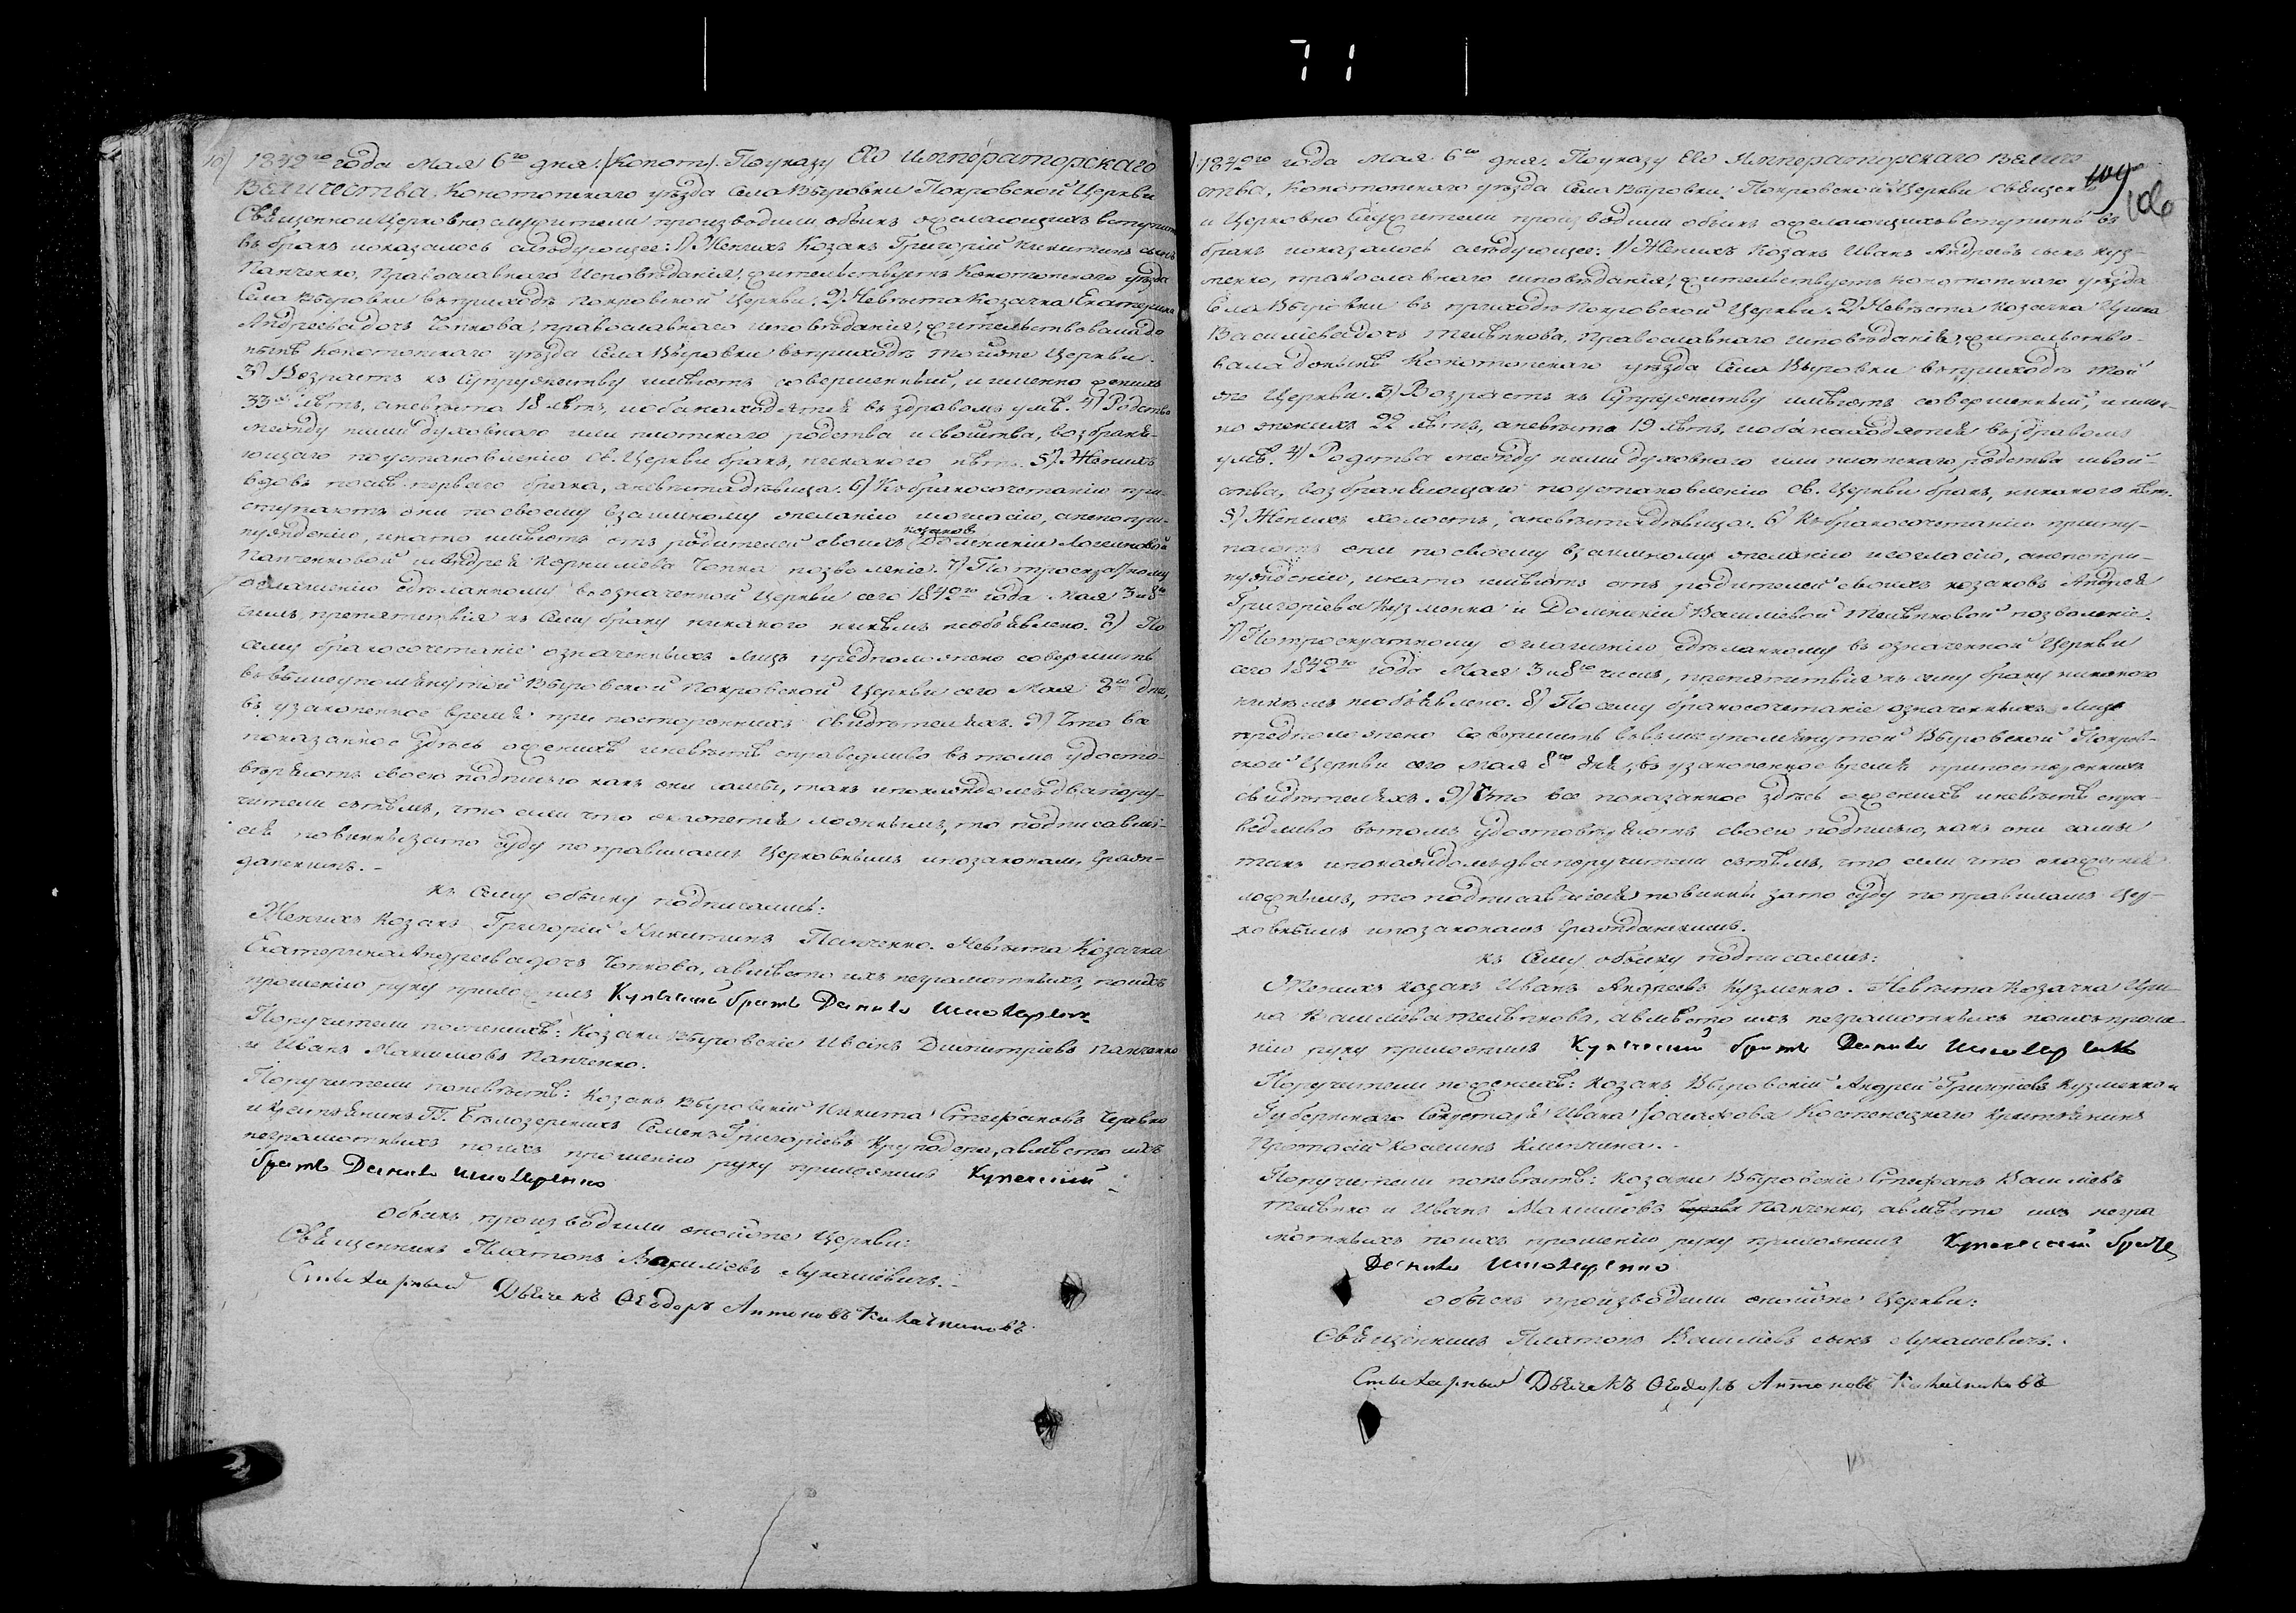 71
10) 1842го года Мая 6го дня. (Копотъ). По указу Его Императорскаго
Величества, Конотопскаго уѣзда Села Выровки Покровской Церкви
Священно и Церковно служители производили обыскъ о желающихъ вступить
въ бракъ и оказалось слѣдующее: 1) Женихъ Козакъ Григорій Никитинъ сынъ
Панченко, Православнаго Исповѣданія, жительствуетъ Конотопскаго уѣзда
Села Выровки въ приходѣ Покровской Церкви. 2) Невѣста Козачка Екатерина
Андреева дочь Чопкова, православнаго исповѣданія, жительствовала до
нынѣ Конотопскаго уѣзда Села Выровки въ приходѣ той же Церкви.
3) Возрастъ къ Супружеству имѣютъ совершенный, и именно женихъ
33 лѣтъ, а невѣста 18 лѣтъ, и оба находятся въ здравомъ умѣ. 4) Родства
между ними духовнаго или плотскаго родства и свойства, возбраня-
ющаго по установленію св. Церкви бракъ, никакого нѣтъ. 5) Женихъ
вдовъ послѣ перваго брака, а невѣста дѣвица. 6) Къ бракосочетанію при-
ступаютъ они по своему взаимному желанію и согласію, а не по при-
нужденію, и на то имѣютъ отъ родителей своихъ козаковъ Домникіи Логвиновой
Панченковой и Андрея Корнилієва Чопка позволеніе. 7) По троекратному
оглашенію сдѣланному въ означенной Церкви сего 1842го года Мая 3 и 8го
числъ, препятствія къ сему браку никакого никѣмъ необъявлено. 8) По
сему бракосочетаніе означенныхъ лицъ предположено совершить
въ вышеупомянутой Выровской Покровской Церкви сего Мая 8го дня,
въ узаконенное время при постороннихъ свидѣтеляхъ. 9) Что все
показанное здѣсь о женихѣ и невѣстѣ справедливо въ томъ удосто-
вѣряютъ своею подписью какъ они сами, такъ и по каждомъ два пору-
чители съ тѣмъ, что если что окажется ложнымъ, то подписавші-
еся повинны за то суду по правиламъ Церковнымъ и по законамъ Граж-
данскимъ.
къ сему обыску подписались:
Женихъ Козакъ Григорій Никитинъ Панченко. Невѣста Козачка
Екатерина Андреева дочь Чопкова, а вмѣсто ихъ неграмотныхъ, по ихъ
прошенію руку приложилъ Купеческій братъ
Поручители по женихѣ: Козаки Выровскіе Иванъ Димитріевъ Панченко
и Иванъ Максимовъ Панченко.
Поручители по невѣстѣ: Козакъ Выровскій Никита Стефановъ Черевко
и крестьянинъ ГГ. Бѣлозерскихъ Семенъ Григоріевъ Круподеря, а вмѣсто ихъ
неграмотныхъ по ихъ прошенію руку приложилъ Купеческій
братъ
обыскъ производили оной же Церкви:
Священникъ Платонъ Василіевъ Лукашевичъ.
Стихарный Дьячекъ Ѳеодоръ Антоновъ
106
) 1842го года Мая 6го дня. По указу Его Императорскаго Велич-
ества, Конотопскаго уѣзда Села Выровки Покровской Церкви Священно
и Церковно Служители производили обыскъ о желающихъ вступить въ
бракъ и оказалось слѣдующее: 1) Женихъ Козакъ Иванъ Андреевъ сынъ Куз-
менко, православнаго исповѣданія, жительствуетъ Конотопскаго уѣзда
Села Выровки въ приходѣ Покровской Церкви. 2) Невѣста Козачка Ирина
Василіева дочь, Православнаго исповѣданія, жительство-
вала донынѣ Конотопскаго уѣзда Села Выровки въ приходѣ той
же Церкви. 3) Возрастъ къ Супружеству имѣютъ совершенный, и имен-
но женихъ 22 лѣтъ, а невѣста 19 лѣтъ, и оба находятся въ здравомъ
умѣ. 4) Родства между ними духовнаго или плотскаго родства и свой-
ства, возбраняющаго по установленію св. Церкви бракъ, никакого нѣтъ.
5) Женихъ холостъ, а невѣста дѣвица. 6) Къ бракосочетанію присту-
паютъ они по своему взаимному желанію и согласію, а не по при-
нужденію, и на то имѣютъ отъ родителей своихъ козаковъ Андрея
Григоріева Кузменка и Домникіи Василіевой позволеніе.
7) По троекратному оглашенію сдѣланному въ означенной Церкви
сего 1842го года Мая 3 и 8го числъ, препятствія къ сему браку никакого
никѣмъ необъявлено. 8) По сему бракосочетаніе означенныхъ лицъ
предположено совершить въ вышеупомянутой Выровской Покров-
ской Церкви сего Мая 8го дня, въ узаконенное время при постороннихъ
свидѣтеляхъ. 9) Что все показанное здѣсь о женихѣ и невѣстѣ спра-
ведливо въ томъ удостовѣряютъ своею подписью, какъ они сами
такъ и по каждомъ два поручители съ тѣмъ, что если что окажется
ложнымъ, то подписавшіеся повинны за то суду по правиламъ Цер-
ковнымъ и по законамъ Гражданскимъ.
къ сему обыску подписались:
Женихъ козакъ Иванъ Андреевъ Кузменко. Невѣста Козачка Ири-
на Василіева, а вмѣсто ихъ неграмотныхъ по ихъ проше-
нію руку приложилъ Купеческій братъ
Поручители по женихѣ: козакъ Выровскій Андрей Григоріевъ Кузменко и
Губернскаго Секретаря Ивана Костенецкаго Крестьянинъ
Протасій
Поручители по невѣстѣ: козаки Выровскіе Стефанъ Василіевъ
и Иванъ Максимовъ Панченко, а вмѣсто ихъ негра-
мотныхъ по ихъ прошенію руку приложилъ Купеческій братъ
обыскъ производили оной же Церкви:
Священникъ Платонъ Василіевъ сынъ Лукашевичъ.
Стихарный Дьячекъ Ѳеодоръ Антоновъ